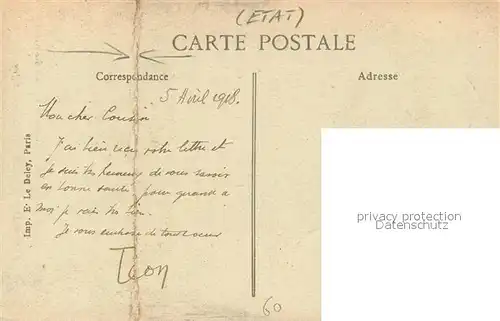 (ETAT)
CARTE POSTALE
Correspondance
Adresse
5 Avril 1918.
Mon cher Cousin
J'ai bien reçu votre lettre et
je suis très heureux de vous savoir
en bonne santé pour quand à
moi je vais très bien.
Je vous embrasse de tout cœur
Léon
Imp. E. Le Deley, Paris
60
privacy protection